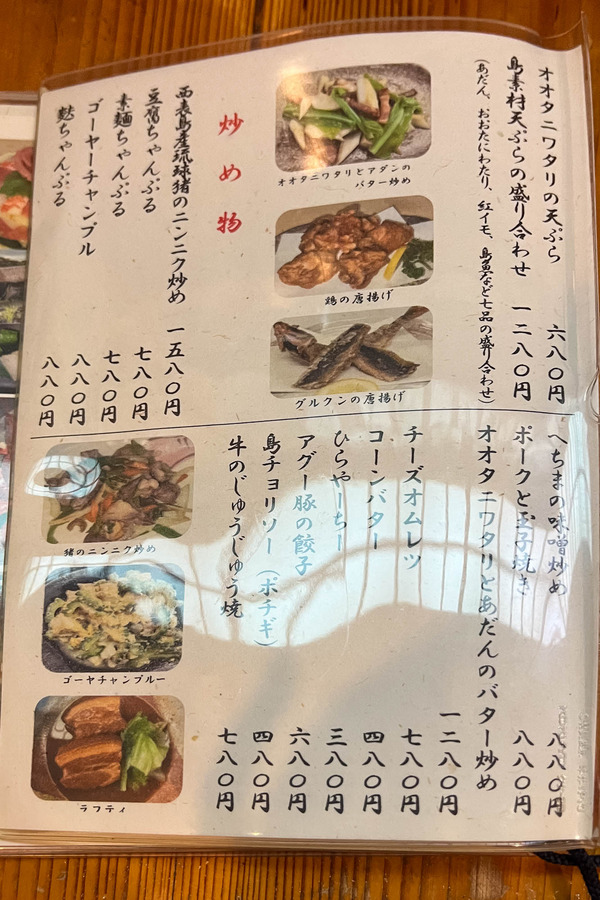 オオタニワタリの天ぷら 六八〇円
島素材天ぷらの盛り合わせ 一二八〇円
(あだん、おおたにわたり、紅イモ、島魚など七品の盛り合わせ)
オオタニワタリとアダンの
バター炒め
鶏の唐揚げ
グルクンの唐揚げ
炒め物
西表島産琉球猪のニンニク炒め 一五八〇円
豆腐ちゃんぷる 七八〇円
素麺ちゃんぷる 七八〇円
ゴーヤーチャンプル 八八〇円
麩ちゃんぷる 八八〇円
へちまの味噌炒め 八八〇円
ポークと玉子焼き 八八〇円
オオタニワタリとあだんのバター炒め 一二八〇円
チーズオムレツ 七八〇円
コーンバター 四八〇円
ひらやーちー 三八〇円
アグー豚の餃子 六八〇円
島チョリソー(ボチギ) 四八〇円
牛のじゅうじゅう焼 七八〇円
猪のニンニク炒め
ゴーヤチャンプルー
ラフティ